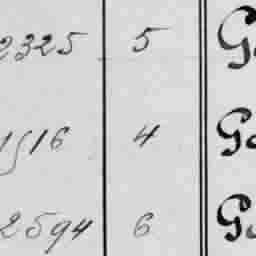 2325 5 Ga
1516 4 Ga
2594 6 Ga